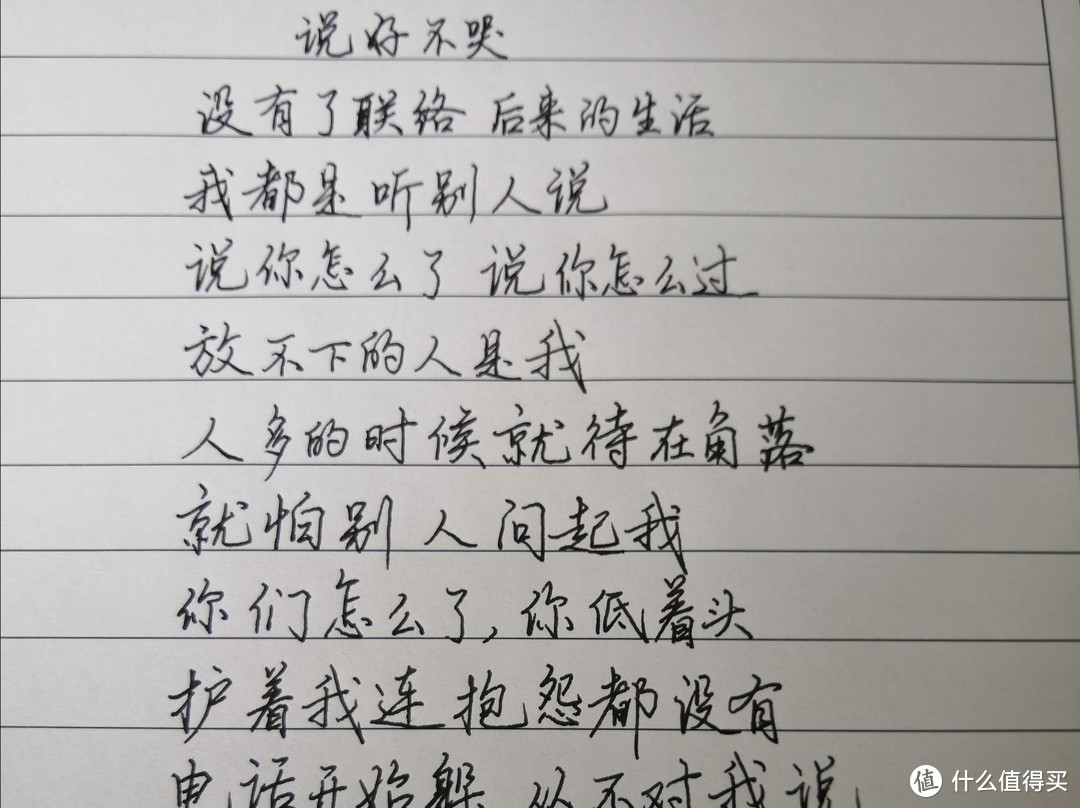 说好不哭
没有了联络 后来的生活
我都是听别人说
说你怎么了 说你怎么过
放不下的人是我
人多的时候就待在角落
就怕别人问起我
你们怎么了,你低着头
护着我连抱怨都没有
电话开始躲 从不对我说
值 什么值得买